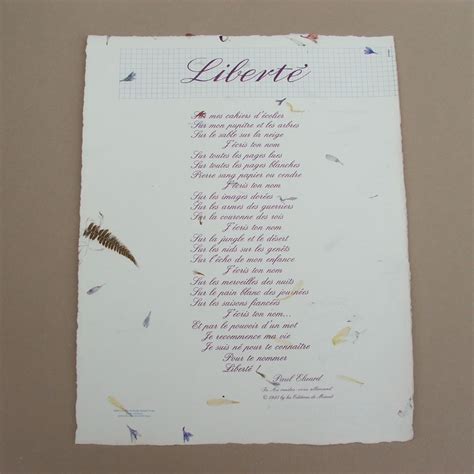 Liberté
Sur mes cahiers d'écolier
Sur mon pupitre et les arbres
Sur le sable sur la neige
J'écris ton nom
Sur toutes les pages lues
Sur toutes les pages blanches
Pierre sang papier ou cendre
J'écris ton nom
Sur les images dorées
Sur les armes des guerriers
Sur la couronne des rois
J'écris ton nom
Sur la jungle et le désert
Sur les nids sur les genêts
Sur l'écho de mon enfance
J'écris ton nom
Sur les merveilles des nuits
Sur le pain blanc des journées
Sur les saisons fiancées
J'écris ton nom...
Et par le pouvoir d'un mot
Je recommence ma vie
Je suis né pour te connaître
Pour te nommer
Liberté !
Paul Eluard
In Au rendez-vous allemand
by les Editions de Minuit